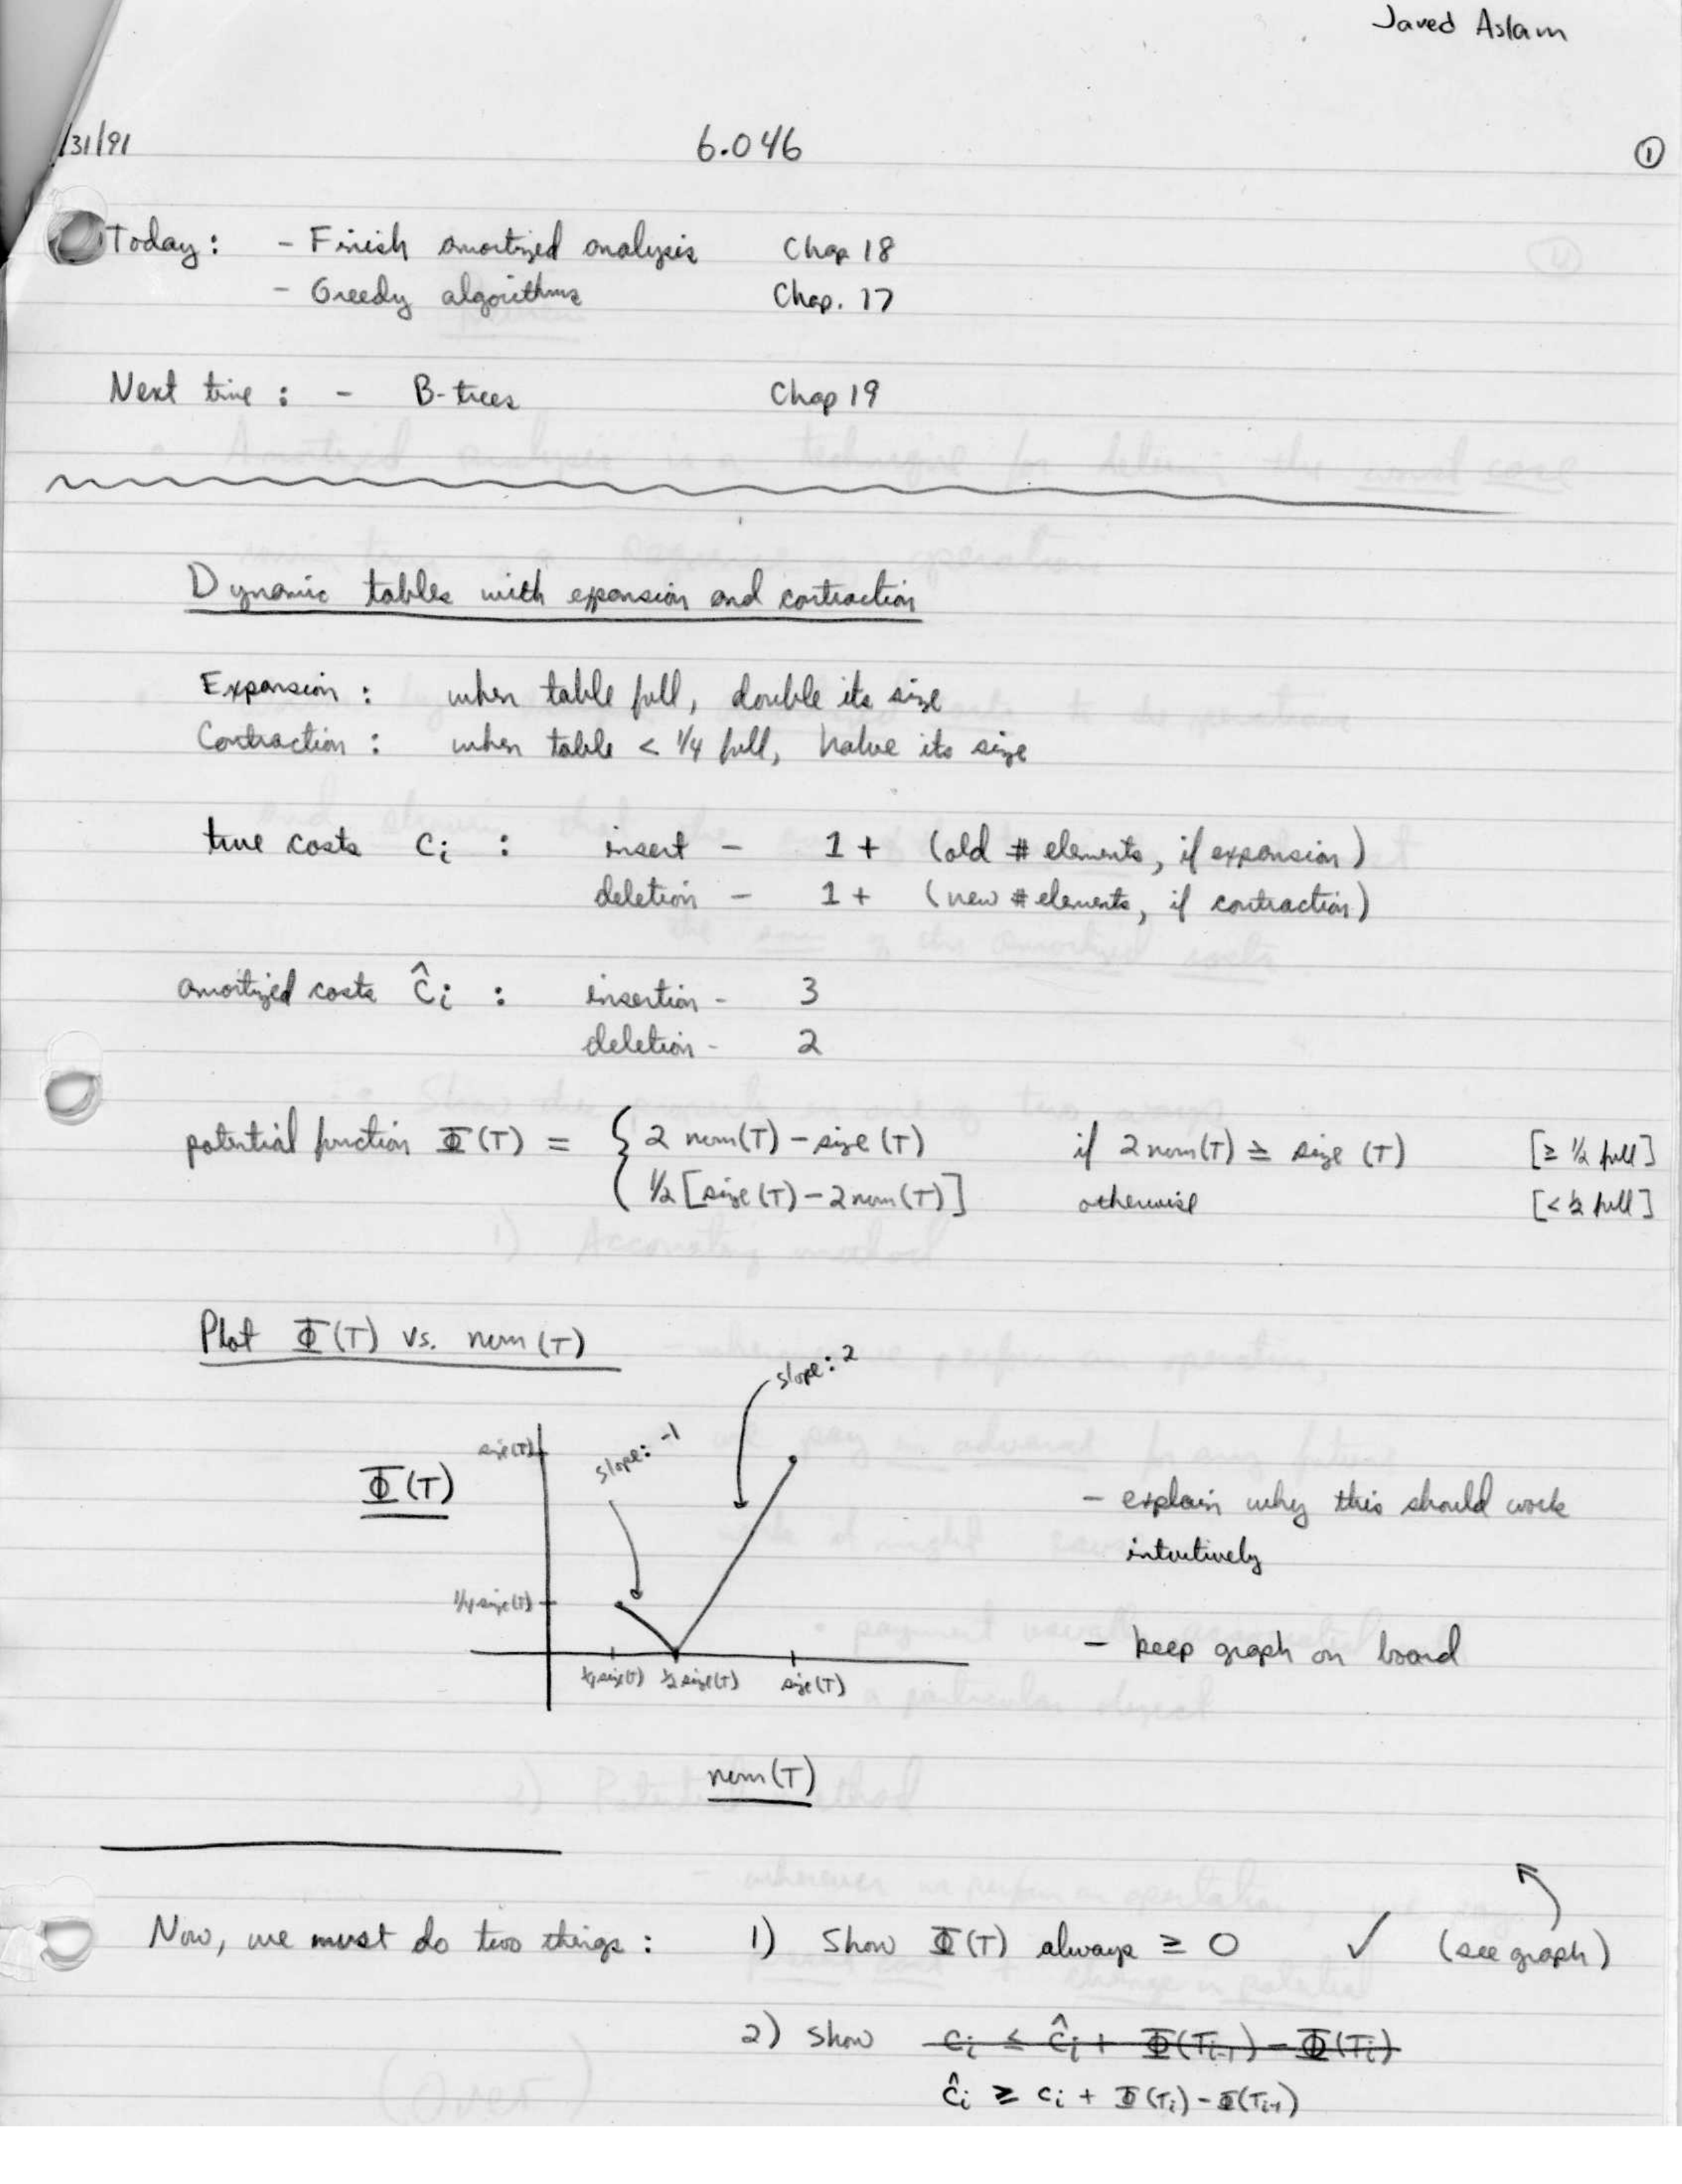 Javed Aslam
/31/91 6.046 ①
Today: - Finish amortized analysis Chap 18
- Greedy algorithms Chap. 17
Next time: - B-trees Chap 19
Dynamic tables with expansion and contraction
Expansion: when table full, double its size
Contraction: when table < 1/4 full, halve its size
true costs cᵢ : insert - 1 + (old # elements, if expansion)
deletion - 1 + (new # elements, if contraction)
amortized costs ĉᵢ : insertion - 3
deletion - 2
potential function Φ(T) = { 2 num(T) - size(T) if 2 num(T) ≥ size (T) [≥ 1/2 full]
1/2 [size(T) - 2 num(T)] otherwise [< 1/2 full]
Plot Φ(T) vs. num(T)
slope: 2
slope: -1
size(T)
Φ(T)
- explain why this should work
intuitively
1/4 size(T)
- keep graph on board
1/4 size(T) 1/2 size(T) size(T)
num(T)
Now, we must do two things: 1) Show Φ(T) always ≥ 0 ✓ (see graph)
2) Show cᵢ ≤ ĉᵢ + Φ(Tᵢ₋₁) - Φ(Tᵢ)
ĉᵢ ≥ cᵢ + Φ(Tᵢ) - Φ(Tᵢ₋₁)